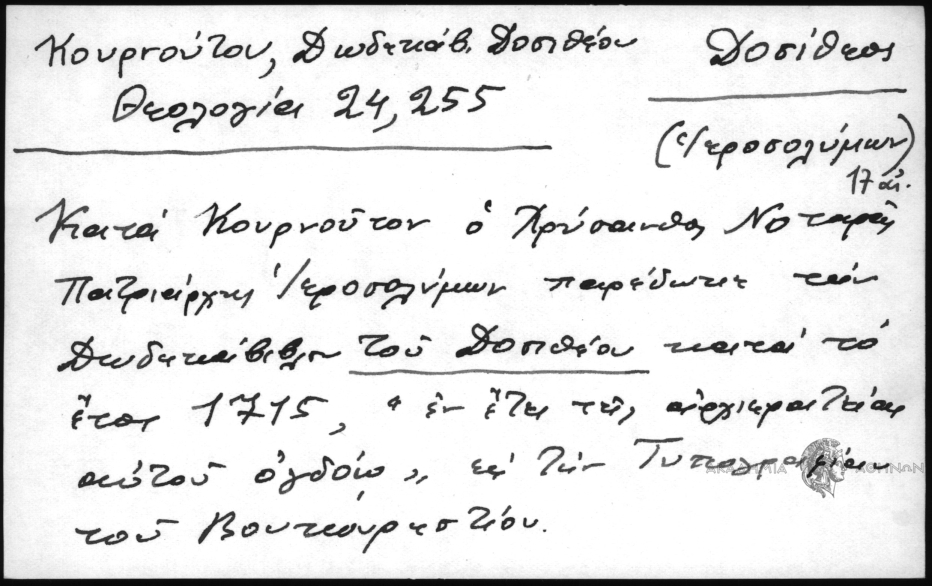 Κουρνούτου, Δωδεκάβ. Δοσιθέου
Θεολογία 24,255
Δοσίθεος
(Ἱεροσολύμων)
17 αἰ.
Κατά Κουρνοῦτον ὁ Χρύσανθος Νοταρᾶς
Πατριάρχης Ἱεροσολύμων παρέδωκε τήν
Δωδεκάβιβλον τοῦ Δοσιθέου κατά τό
ἔτος 1715, "ἐν ἔτει τῆς ἀρχιερατείας
αὐτοῦ ὀγδόῳ" εἰς τήν Τυπογραφίαν
τοῦ Βουκουρεστίου.
ΑΚΑΔΗΜΙΑ ΑΘΗΝΩΝ